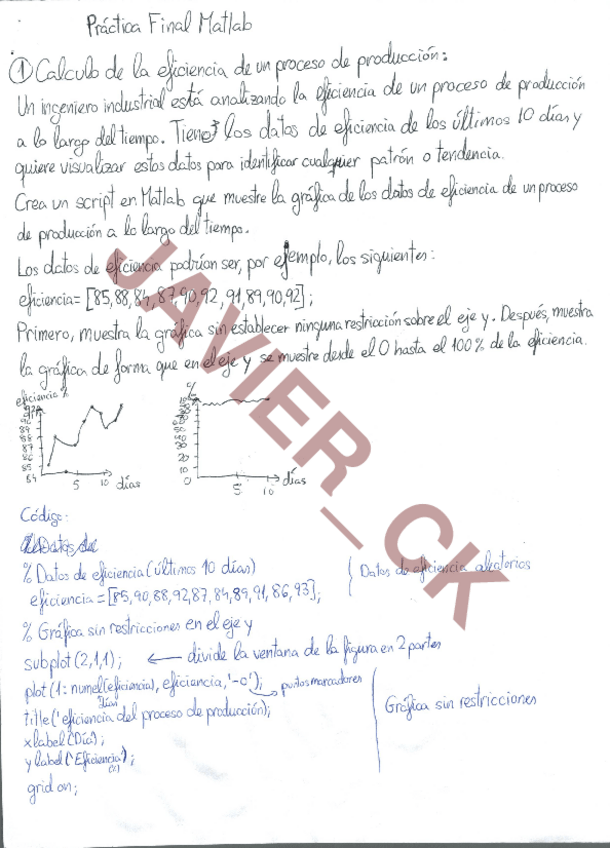 Práctica Final Matlab
① Calculo de la eficiencia de un proceso de producción:
Un ingeniero industrial está analizando la eficiencia de un proceso de producción
a lo largo del tiempo. Tiene los datos de eficiencia de los últimos 10 días y
quiere visualizar estos datos para identificar cualquier patrón o tendencia.
Crea un script en Matlab que muestre la gráfica de los datos de eficiencia de un proceso
de producción a lo largo del tiempo.
Los datos de eficiencia podrían ser, por ejemplo, los siguientes:
eficiencia = [85,88,84,87,90,92,91,89,90,92];
Primero, muestra la gráfica sin establecer ninguna restricción sobre el eje y. Después, muestra
la gráfica de forma que en el eje y se muestre desde el 0 hasta el 100% de la eficiencia.
eficiencia %
89
88
87
86
85
84
5 10 días
%
20
10
0
5 10 días
Código:
% Datos de eficiencia (últimos 10 días)
eficiencia = [85,90,88,92,87,84,89,91,86,93];
Datos de eficiencia aleatorios
% Gráfica sin restricciones en el eje y
subplot(2,1,1); ← divide la ventana de la figura en 2 partes
plot(1:numel(eficiencia), eficiencia, '-o'); → puntos marcadores
title('eficiencia del proceso de producción);
xlabel('Día);
ylabel('Eficiencia (%)');
grid on;
Gráfica sin restricciones
JAVIER_CK